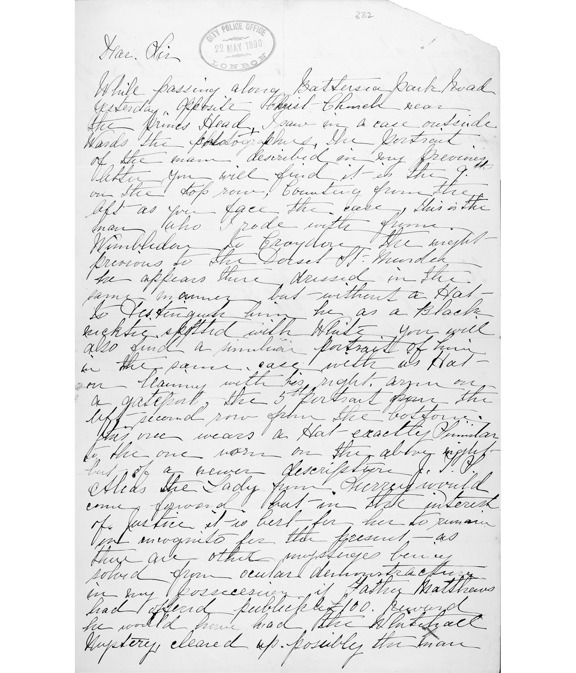 222
CITY POLICE OFFICE
22 MAY 1890
LONDON
Dear Sir
While passing along Battersea Park Road
yesterday opposite Christ Church near
the Princes Head, I saw in a case outside
wards the photographers, the Portrait
of the man described in my previous
letter you will find it is the 9th
on the top row, Counting from the
left as you face the case, this is the
man who I rode with from
Wimbledon to Croydon the night
previous to the Dorset St. Murder
he appears there dressed in the
same manner but without a Hat
to distinguish him he as a Black
necktie spotted with White you will
also find a similar portrait of him
in the same case with is Hat
on leaning with his right arm on
a gatepost, the 5th portrait from the
left second row from the bottom.
this one wears a Hat exactly simular
to the one worn on the above night
but of a newer description
Alias the Lady from Surrey would
come forward but in the interest
of justice it is best for her to remain
in incognito for the present as
there are other mysteries being
solved from ocular demonstraction
in my possecesion if Matthews
had offered publickly £100. Reward
he would have had the Whitehall
Mystery, cleared up. posibly the man